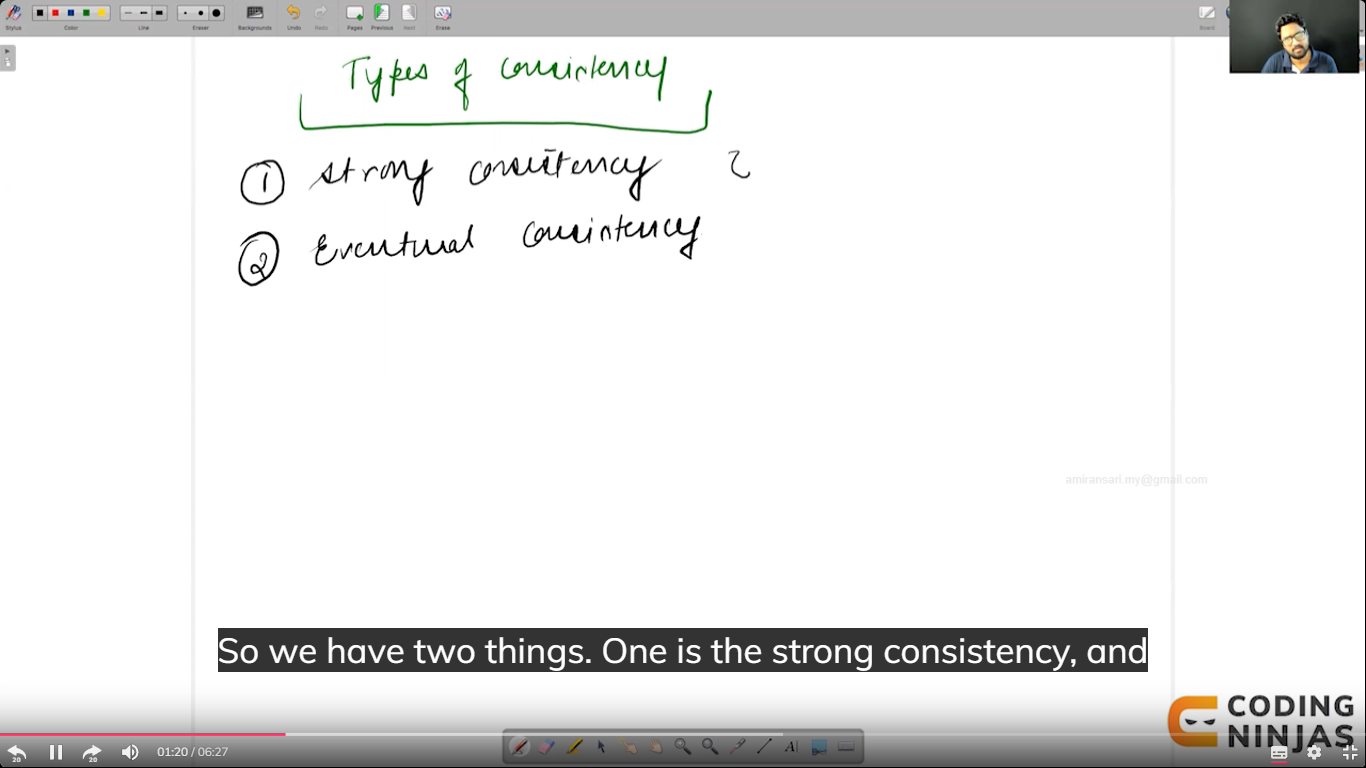 Stylus Color Line Eraser Backgrounds Undo Redo Pages Previous Next Erase Board
Types of consistency
① Strong consistency
② Eventual consistency
amiransari.my@gmail.com
So we have two things. One is the strong consistency, and
CODING
NINJAS
20 20 01:20 / 06:27